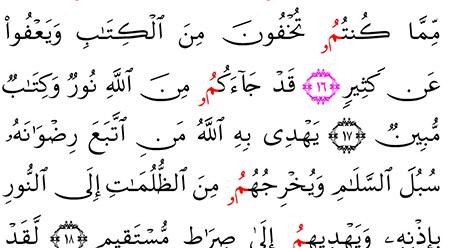 مِّمَّا كُنتُمُۥ تُخْفُونَ مِنَ ٱلْكِتَٰبِ وَيَعْفُوا۟
عَن كَثِيرٍ ١٦ قَدْ جَآءَكُمُۥ مِنَ ٱللَّهِ نُورٌ وَكِتَٰبٌ
مُّبِينٌ ١٧ يَهْدِى بِهِ ٱللَّهُ مَنِ ٱتَّبَعَ رِضْوَٰنَهُۥ
سُبُلَ ٱلسَّلَٰمِ وَيُخْرِجُهُمُۥ مِنَ ٱلظُّلُمَٰتِ إِلَى ٱلنُّورِ
بِإِذْنِهِۦ وَيَهْدِيهِمُۥ إِلَىٰ صِرَٰطٍ مُّسْتَقِيمٍ ١٨ لَّقَدْ